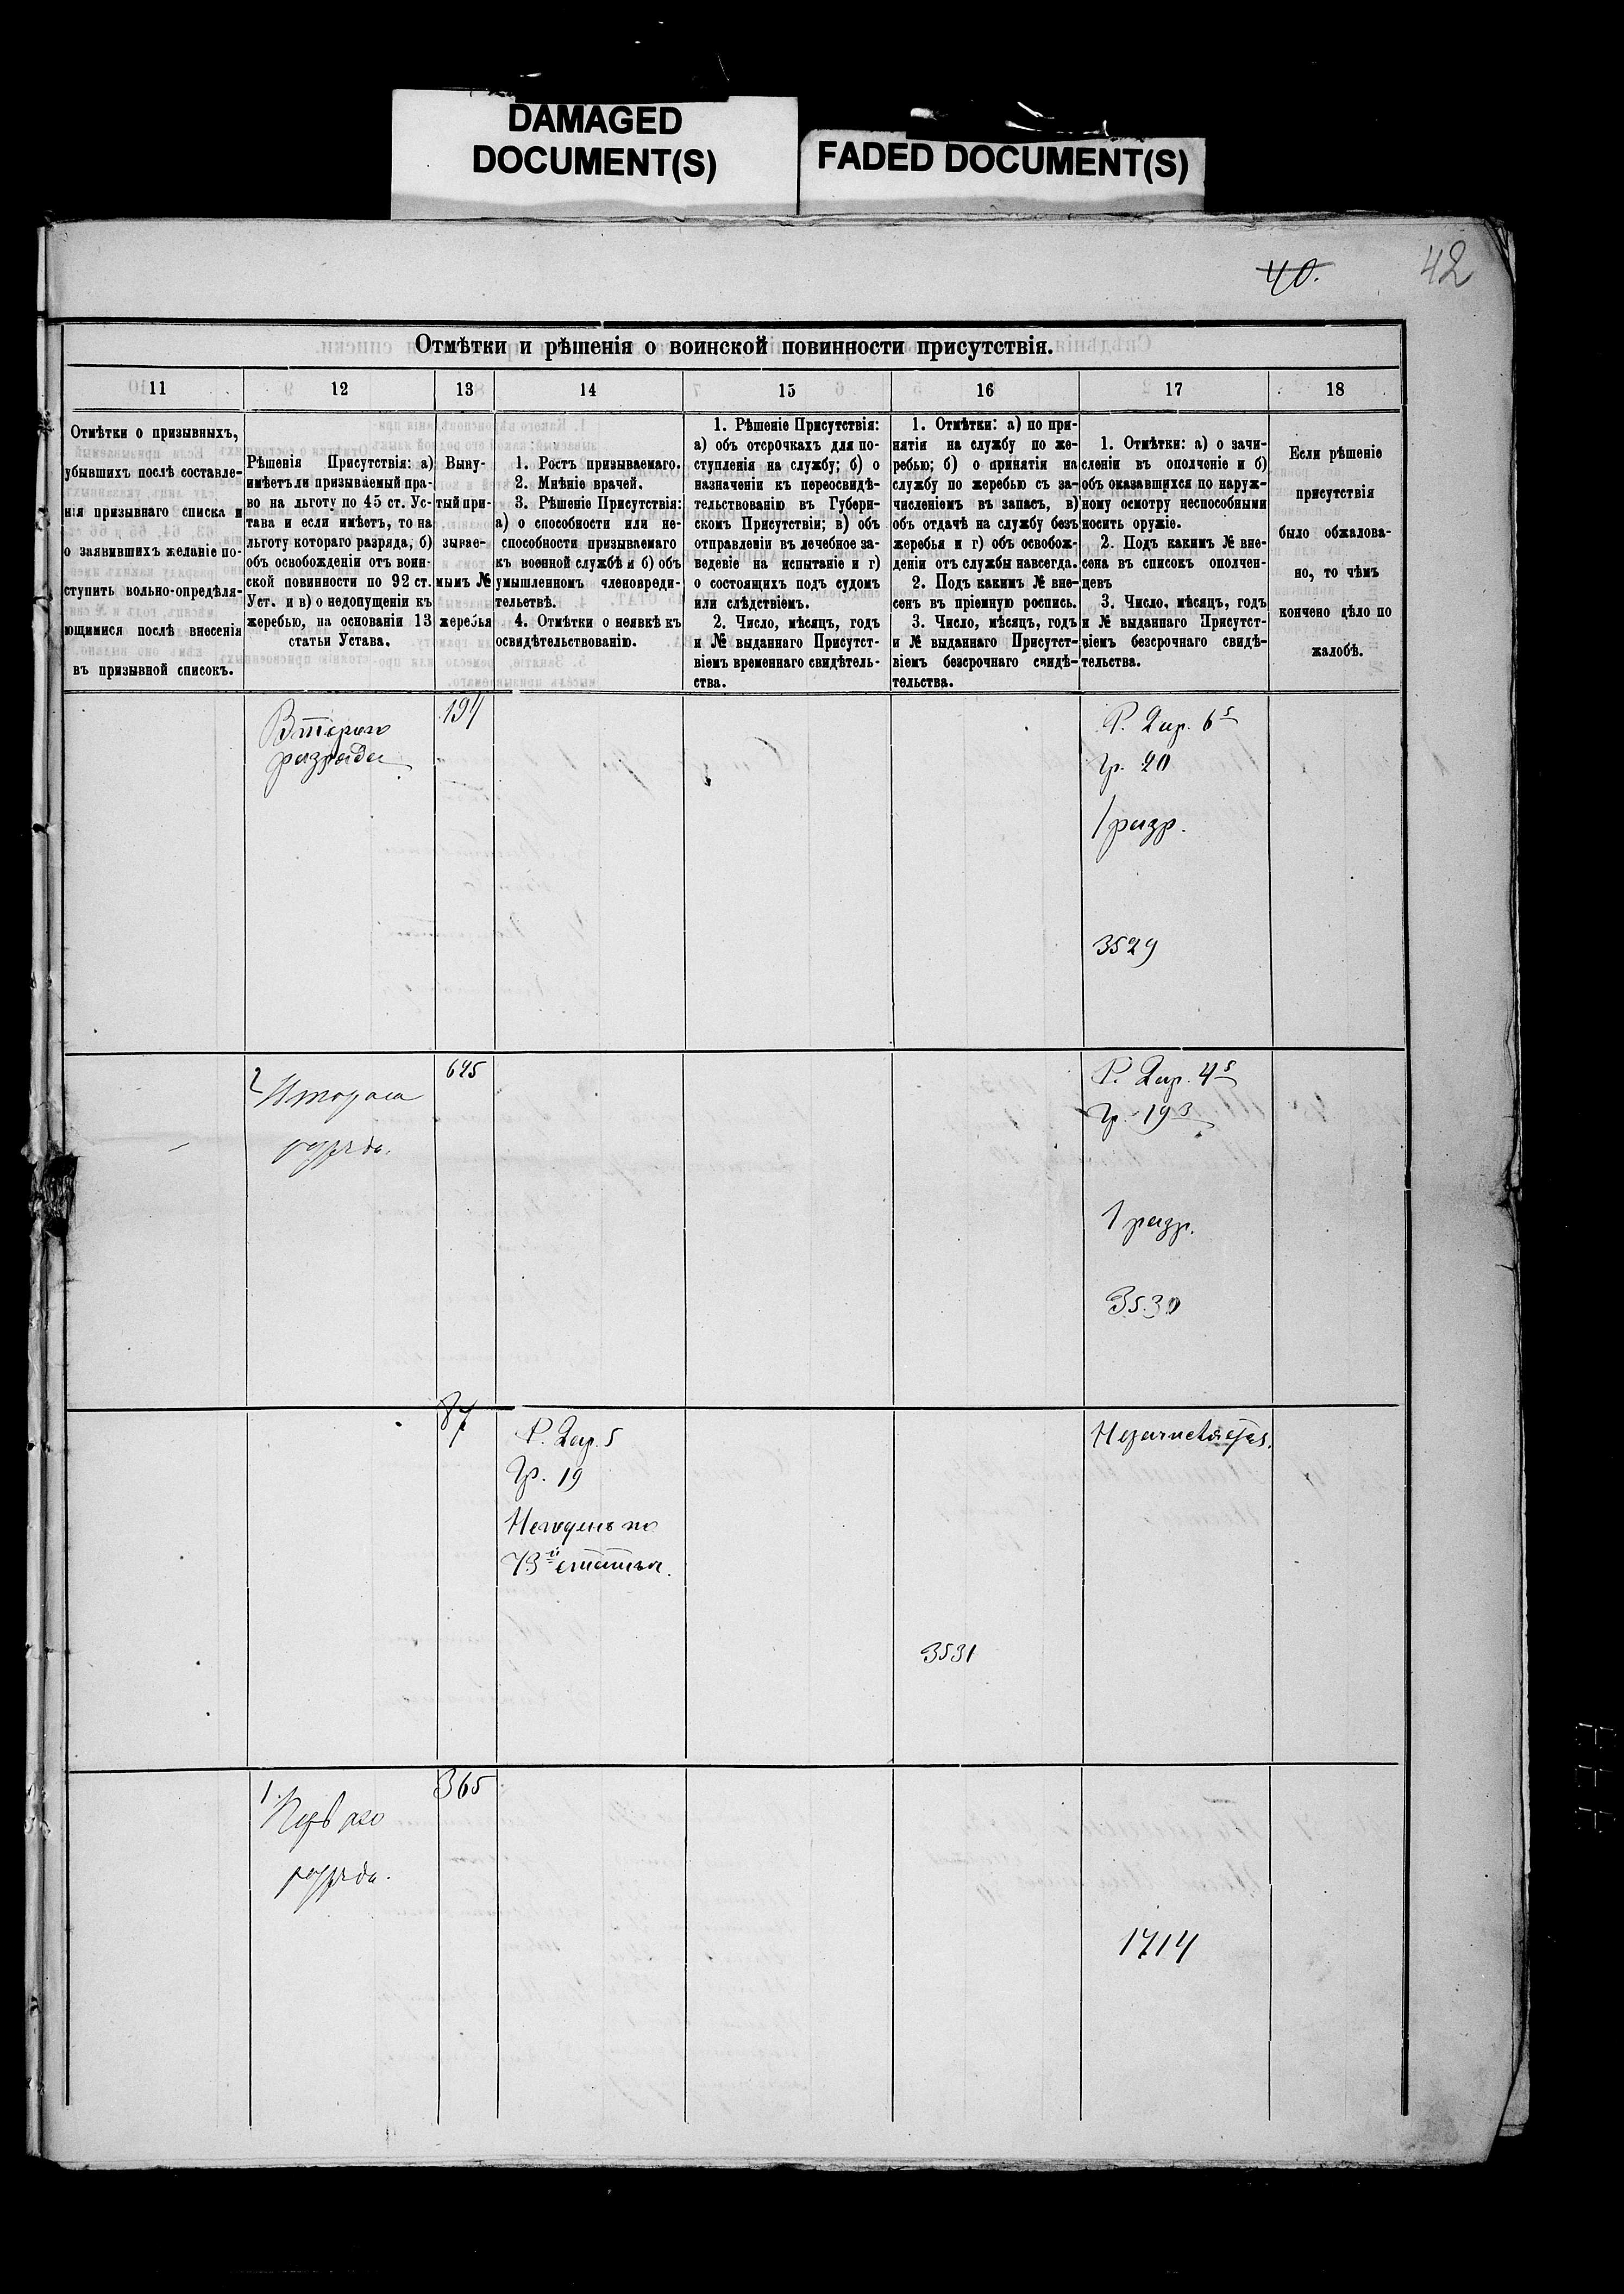 DAMAGED
DOCUMENT(S)
FADED DOCUMENT(S)
40.
42
Отмѣтки и рѣшенія о воинской повинности присутствія.
11
12
13
14
15
16
17
18
Отмѣтки о призывныхъ,
убывшихъ послѣ составле-
нія призывнаго списка и
о заявившихъ желаніе по-
ступить вольно-опредѣля-
ющимися послѣ внесенія
въ призывной списокъ.
Рѣшенія Присутствія: а)
имѣетъ ли призываемый пра-
во на льготу по 45 ст. Ус-
тава и если имѣетъ, то на
льготу котораго разряда, б)
объ освобожденіи отъ воин-
ской повинности по 92 ст.
Уст. и в) о недопущеніи къ
жеребью, на основаніи 13
статьи Устава.
Выну-
тый при-
зывае-
мымъ №
жеребья
1. Ростъ призываемаго.
2. Мнѣніе врачей.
3. Рѣшеніе Присутствія:
а) о способности или не-
способности призываемаго
къ военной службѣ и б) объ
умышленномъ членовреди-
тельетвѣ.
4. Отмѣтки о неявкѣ къ
освидѣтельствованію.
1. Рѣшеніе Присутствія:
а) объ отсрочкахъ для по-
ступленія на службу; б) о
назначеніи къ переосвидѣ-
тельствованію въ Губерн-
скомъ Присутствіи; в) объ
отправленіи въ лечебное за-
ведевіе на испытаніе и г)
о состоящихъ подъ судомъ
или слѣдствіемъ.
2. Число, мѣсяцъ, годъ
и № выданнаго Присутст-
віемъ временнаго свидѣтель-
ства.
1. Отмѣтки: а) по при-
нятіи на службу по же-
ребью; б) о принятіи на
службу по жеребью съ за-
численіемъ въ запасъ, в)
объ отдачѣ на службу безъ
жеребья и г) объ освобож-
деніи отъ службы навсегда.
2. Подъ какимъ № вне-
сенъ въ пріемную роспись.
3. Число, мѣсяцъ, годъ
и № выданнаго Присутст-
віемъ безсрочнаго свидѣ-
тельства.
1. Отмѣтки: а) о зачи-
сленіи въ ополченіе и б)
объ оказавшихся по наруж-
ному осмотру неспособными
носить оружіе.
2. Подъ какимъ № вне-
сена въ списокъ ополчен-
цевъ
3. Число, мѣсяцъ, годъ
и № выданнаго Присутст-
віемъ безсрочнаго свидѣ-
тельства.
Если рѣшеніе
присутствія
было обжалова-
но, то чѣмъ
кончено дѣло по
жалобѣ.
Втораго
разряда
194
Р. 2 ар. 6
гр. 20
1 разр.
3529
2
Втораго
разряда.
645
Р. 2 ар. 4
гр. 19
1 разр.
3530
87
Р. 2 ар. 5
гр. 19
Негоденъ по
73й статьи.
3531
Незачисляется.
1.
Перваго
разряда.
365
1714